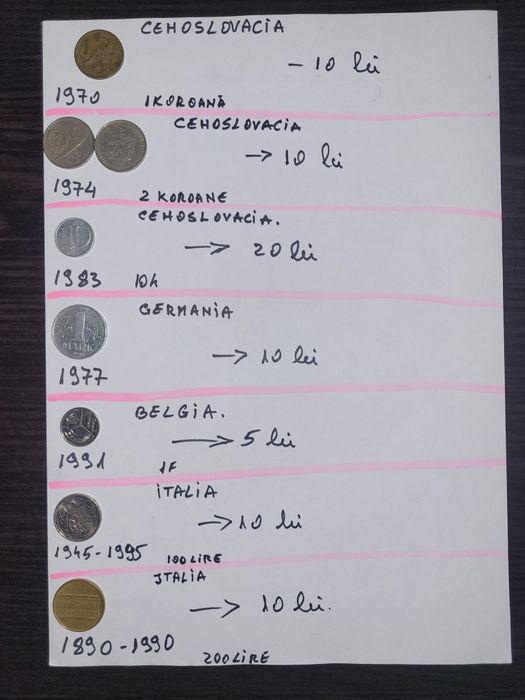 CEHOSLOVACIA
- 10 lei
1970 1 KOROANĂ
CEHOSLOVACIA
→ 10 lei
1974 2 KOROANE
CEHOSLOVACIA.
→ 20 lei
1983 10h
GERMANIA
1
MARK
→ 10 lei
1977
BELGIA.
→ 5 lei
1991 1F
ITALIA
→ 10 lei
1945-1995 100 LIRE
ITALIA
→ 10 lei.
1890-1990
200 LIRE